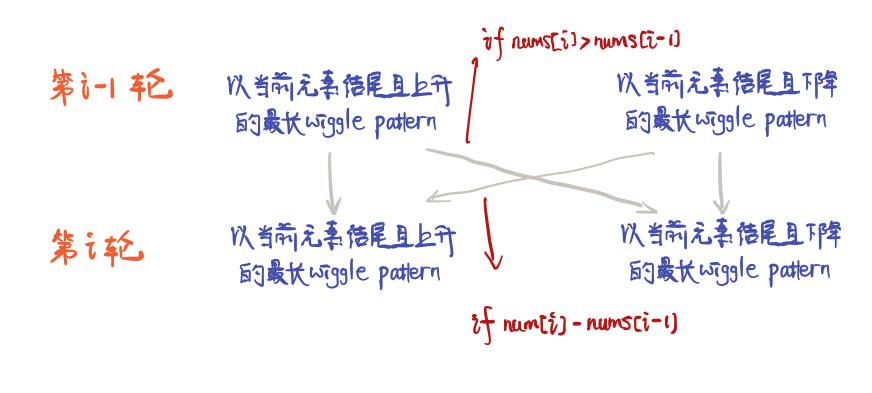 if nums[i]>nums[i-1]
第i-1轮
以当前元素结尾且上升
的最长wiggle pattern
以当前元素结尾且下降
的最长wiggle pattern
第i轮
以当前元素结尾且上升
的最长wiggle pattern
以当前元素结尾且下降
的最长wiggle pattern
if num[i]-nums[i-1]